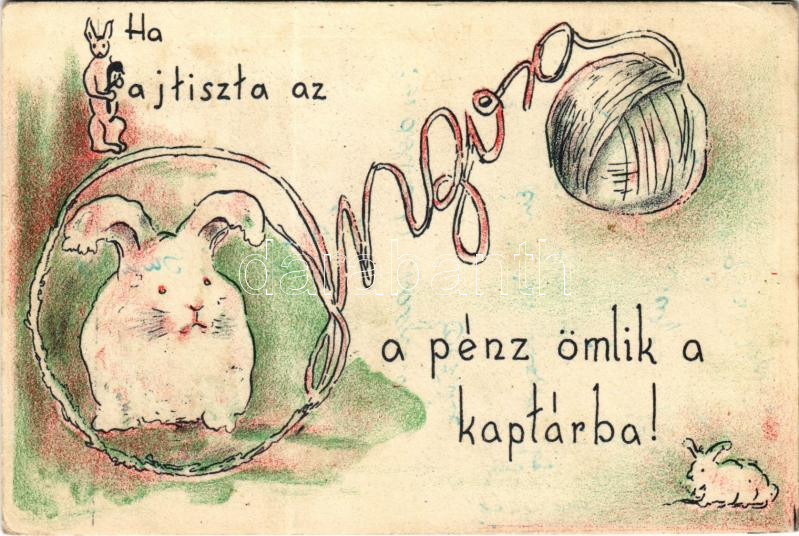 Ha
fajtiszta az
angora
a pénz ömlik a
kaptárba!
darabanth